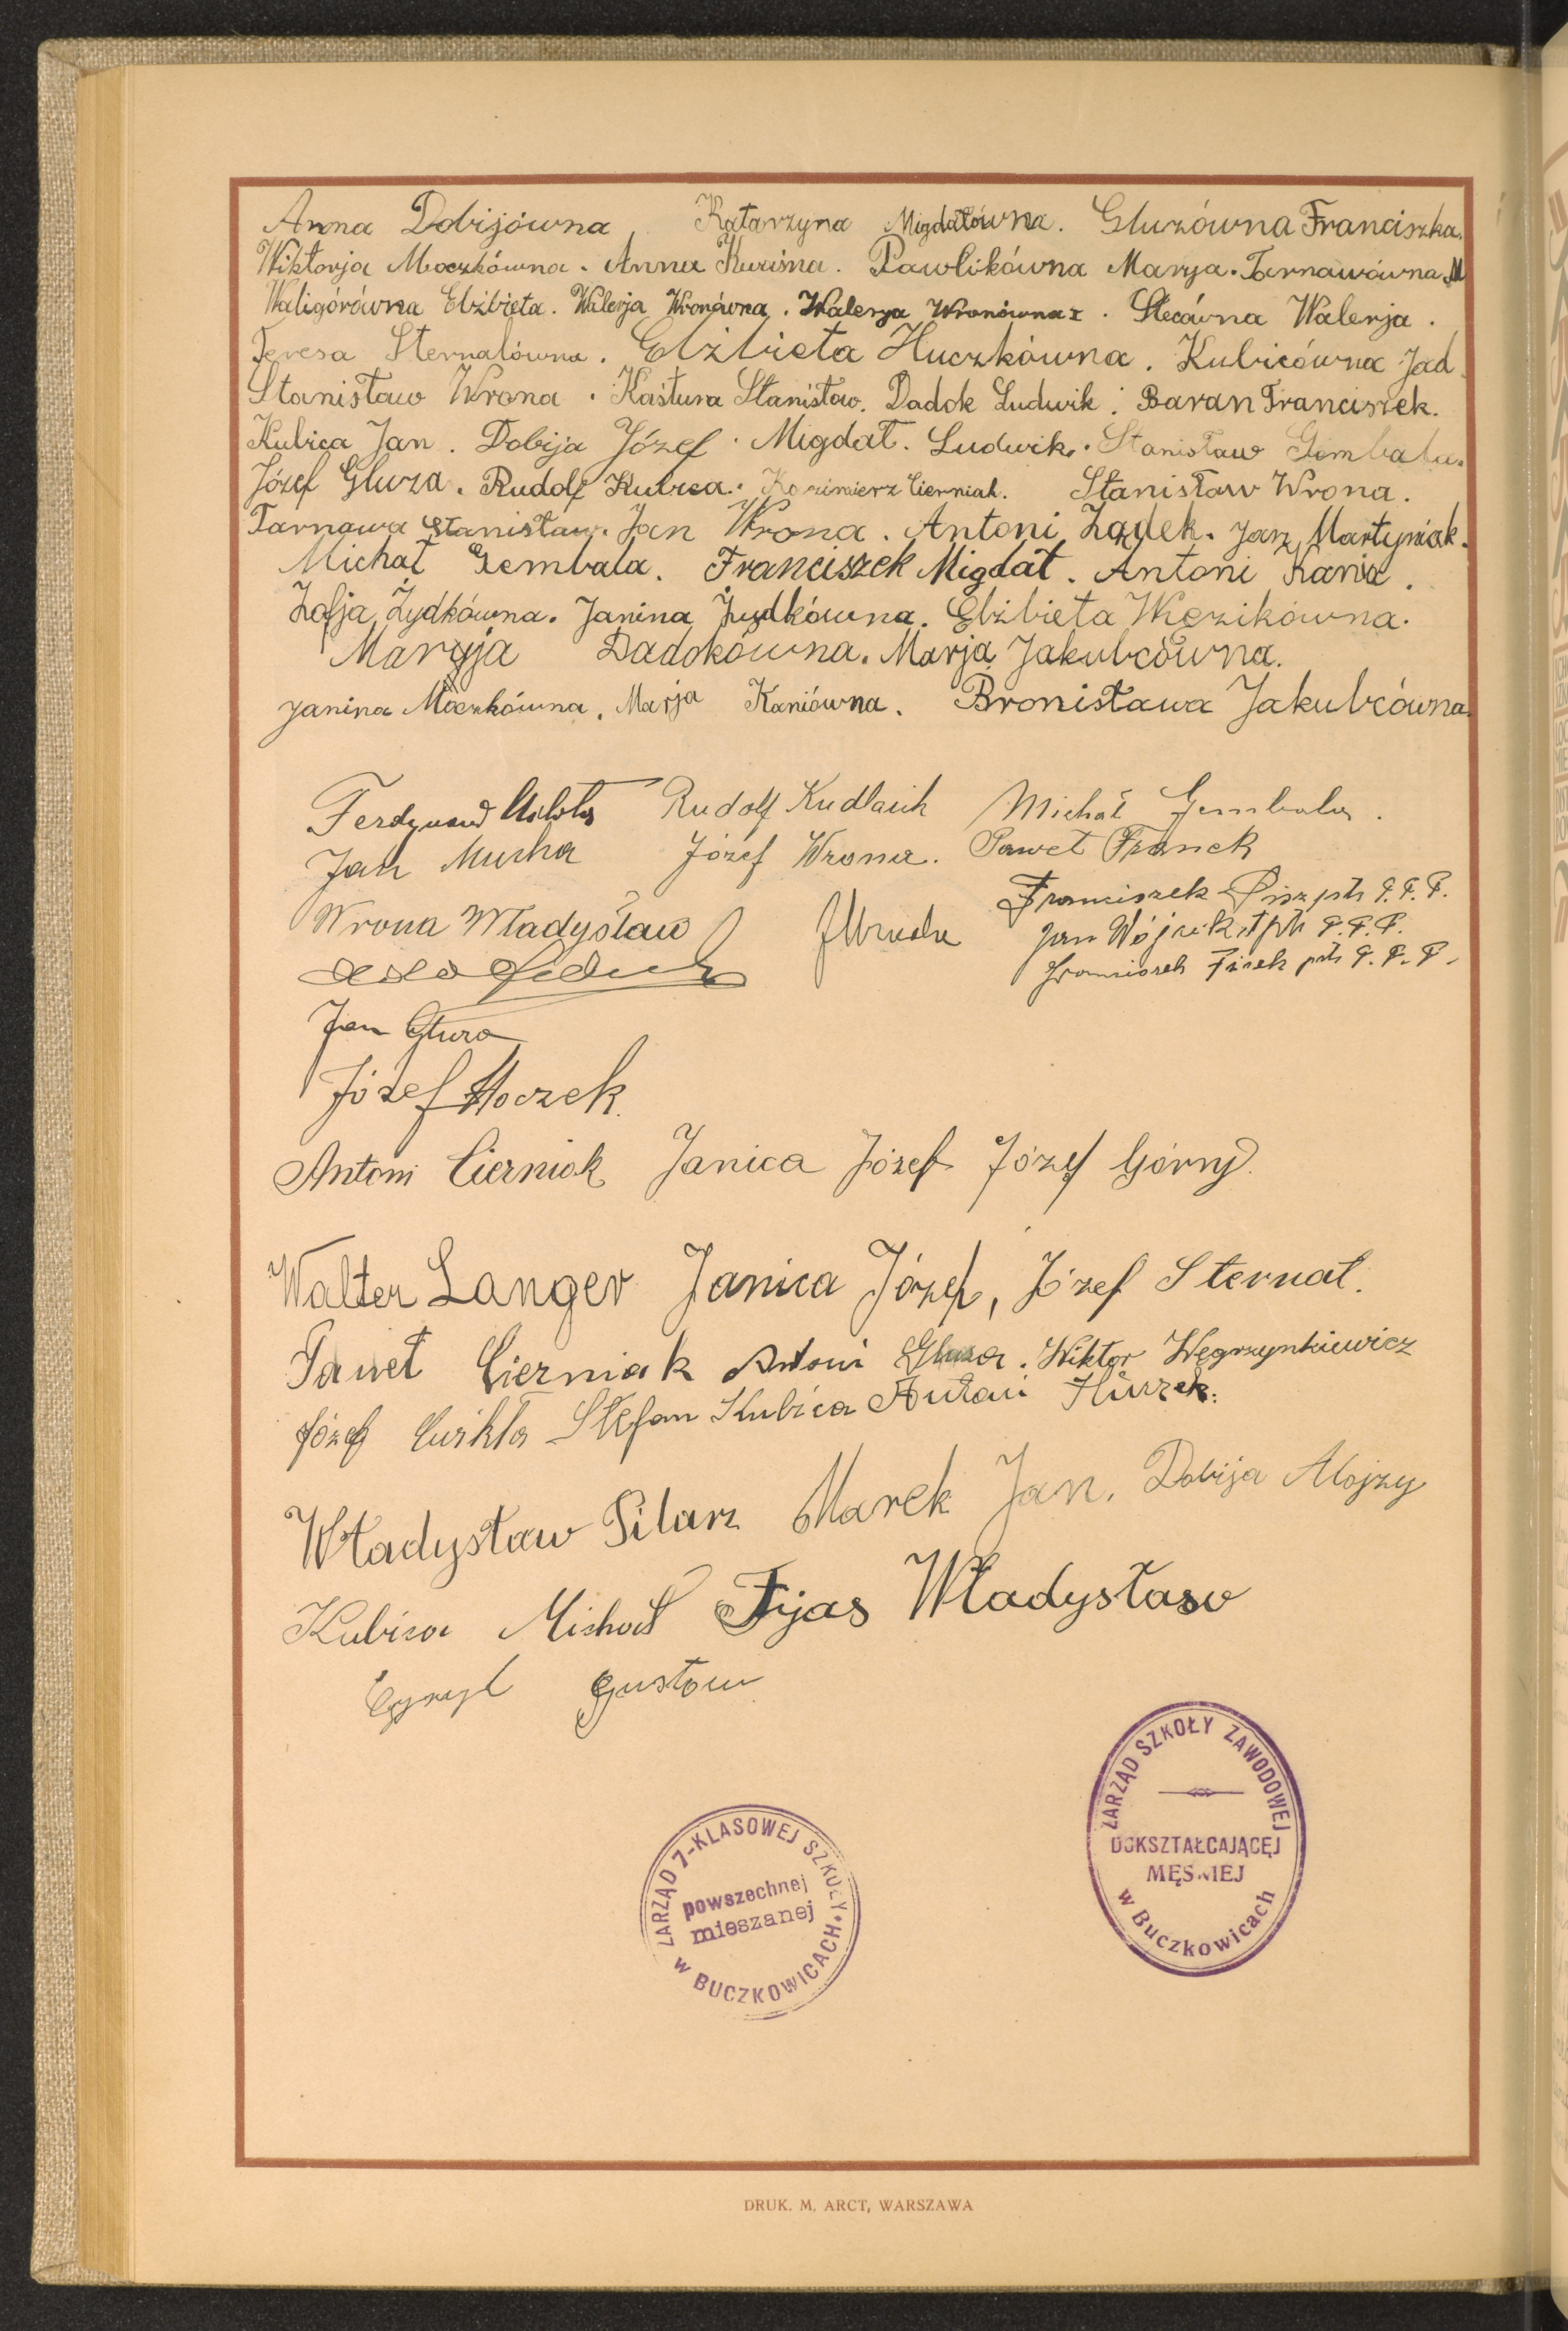 Anna Dobijówna. Katarzyna Migdałówna. Gluzówna Franciszka.
Wiktorja Moczkówna. Anna Kuriśna. Pawlikówna Marya. Tarnawówna M
Waligórówna Elżbieta. Walerja Wronówna. Walerya Wronówna I. Stecówna Walerja.
Teresa Sternalówna. Elżbieta Huczkówna. Kubicówna Jad.
Stanisław Wrona. Kastura Stanisław. Dadok Ludwik. Baran Franciszek.
Kubica Jan. Dobija Józef. Migdał. Ludwik. Stanisław Gembala.
Józef Gluza. Rudolf Kubica. Kazimierz Cierniak. Stanisław Wrona.
Tarnawa Stanisław. Jan Wrona. Antoni Żądek. Jan Martyniak.
Michał Gembala. Franciszek Migdał. Antoni Kania.
Zofja Żydkówna. Janina Żydkówna. Elżbieta Węzikówna.
Maryja Dadokówna. Marja Jakubcówna.
Janina Moczkówna. Marja Kaniówna. Bronisława Jakubcówna.
Ferdynand Rudolf Kudlaik Michał Gembala.
Jan Mucha Józef Wrona. Paweł Franek
Wrona Władysław Franciszek Pisz pts P.P.P.
Jan Wójcik P.P.P.
Franciszek Firek pts P.P.P.
Jan Gluza
Józef Moczek.
Antoni Cierniak Janica Józef Józef Górny.
Walter Langer Janica Józef, Józef Sternal.
Paweł Cierniak Antoni Gluza. Wiktor Węgrzynkiewicz
Józef Ćwikła Stefan Kubica Antoni Huczek.
Władysław Pilarz Marek Jan. Dobija Alojzy
Kubica Michał Fijas Władysław
Cyryl Gustaw
ZARZĄD SZKOŁY ZAWODOWEJ
DOKSZTAŁCAJĄCEJ
MĘSKIEJ
w Buczkowicach
ZARZĄD 7-KLASOWEJ SZKOŁY
powszechnej
mieszanej
w BUCZKOWICACH
DRUK. M. ARCT, WARSZAWA